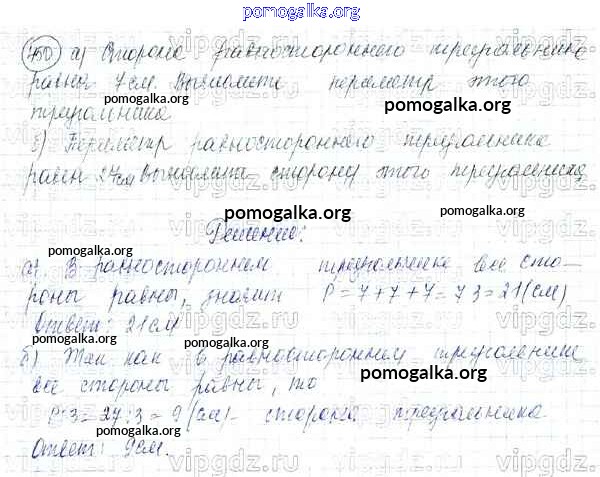 pomogalka.org
750 а) Сторона равностороннего треугольника
равна 7 см. Вычислите периметр этого
pomogalka.org
треугольника pomogalka.org
б) Периметр равностороннего треугольника
равен 27 см Вычислите сторону этого треугольника
pomogalka.org pomogalka.org
Решение:
pomogalka.org
а) В равностороннем треугольнике все сто-
роны равны, значит P = 7 + 7 + 7 = 7 3 = 21 (см)
Ответ: 21 см pomogalka.org
б) Так как в равностороннем треугольнике
все стороны равны, то pomogalka.org
pomogalka.org
P:3 = 27:3 = 9 (см) - сторона треугольника
pomogalka.org
Ответ: 9 см.
vipgdz. vipgdz.